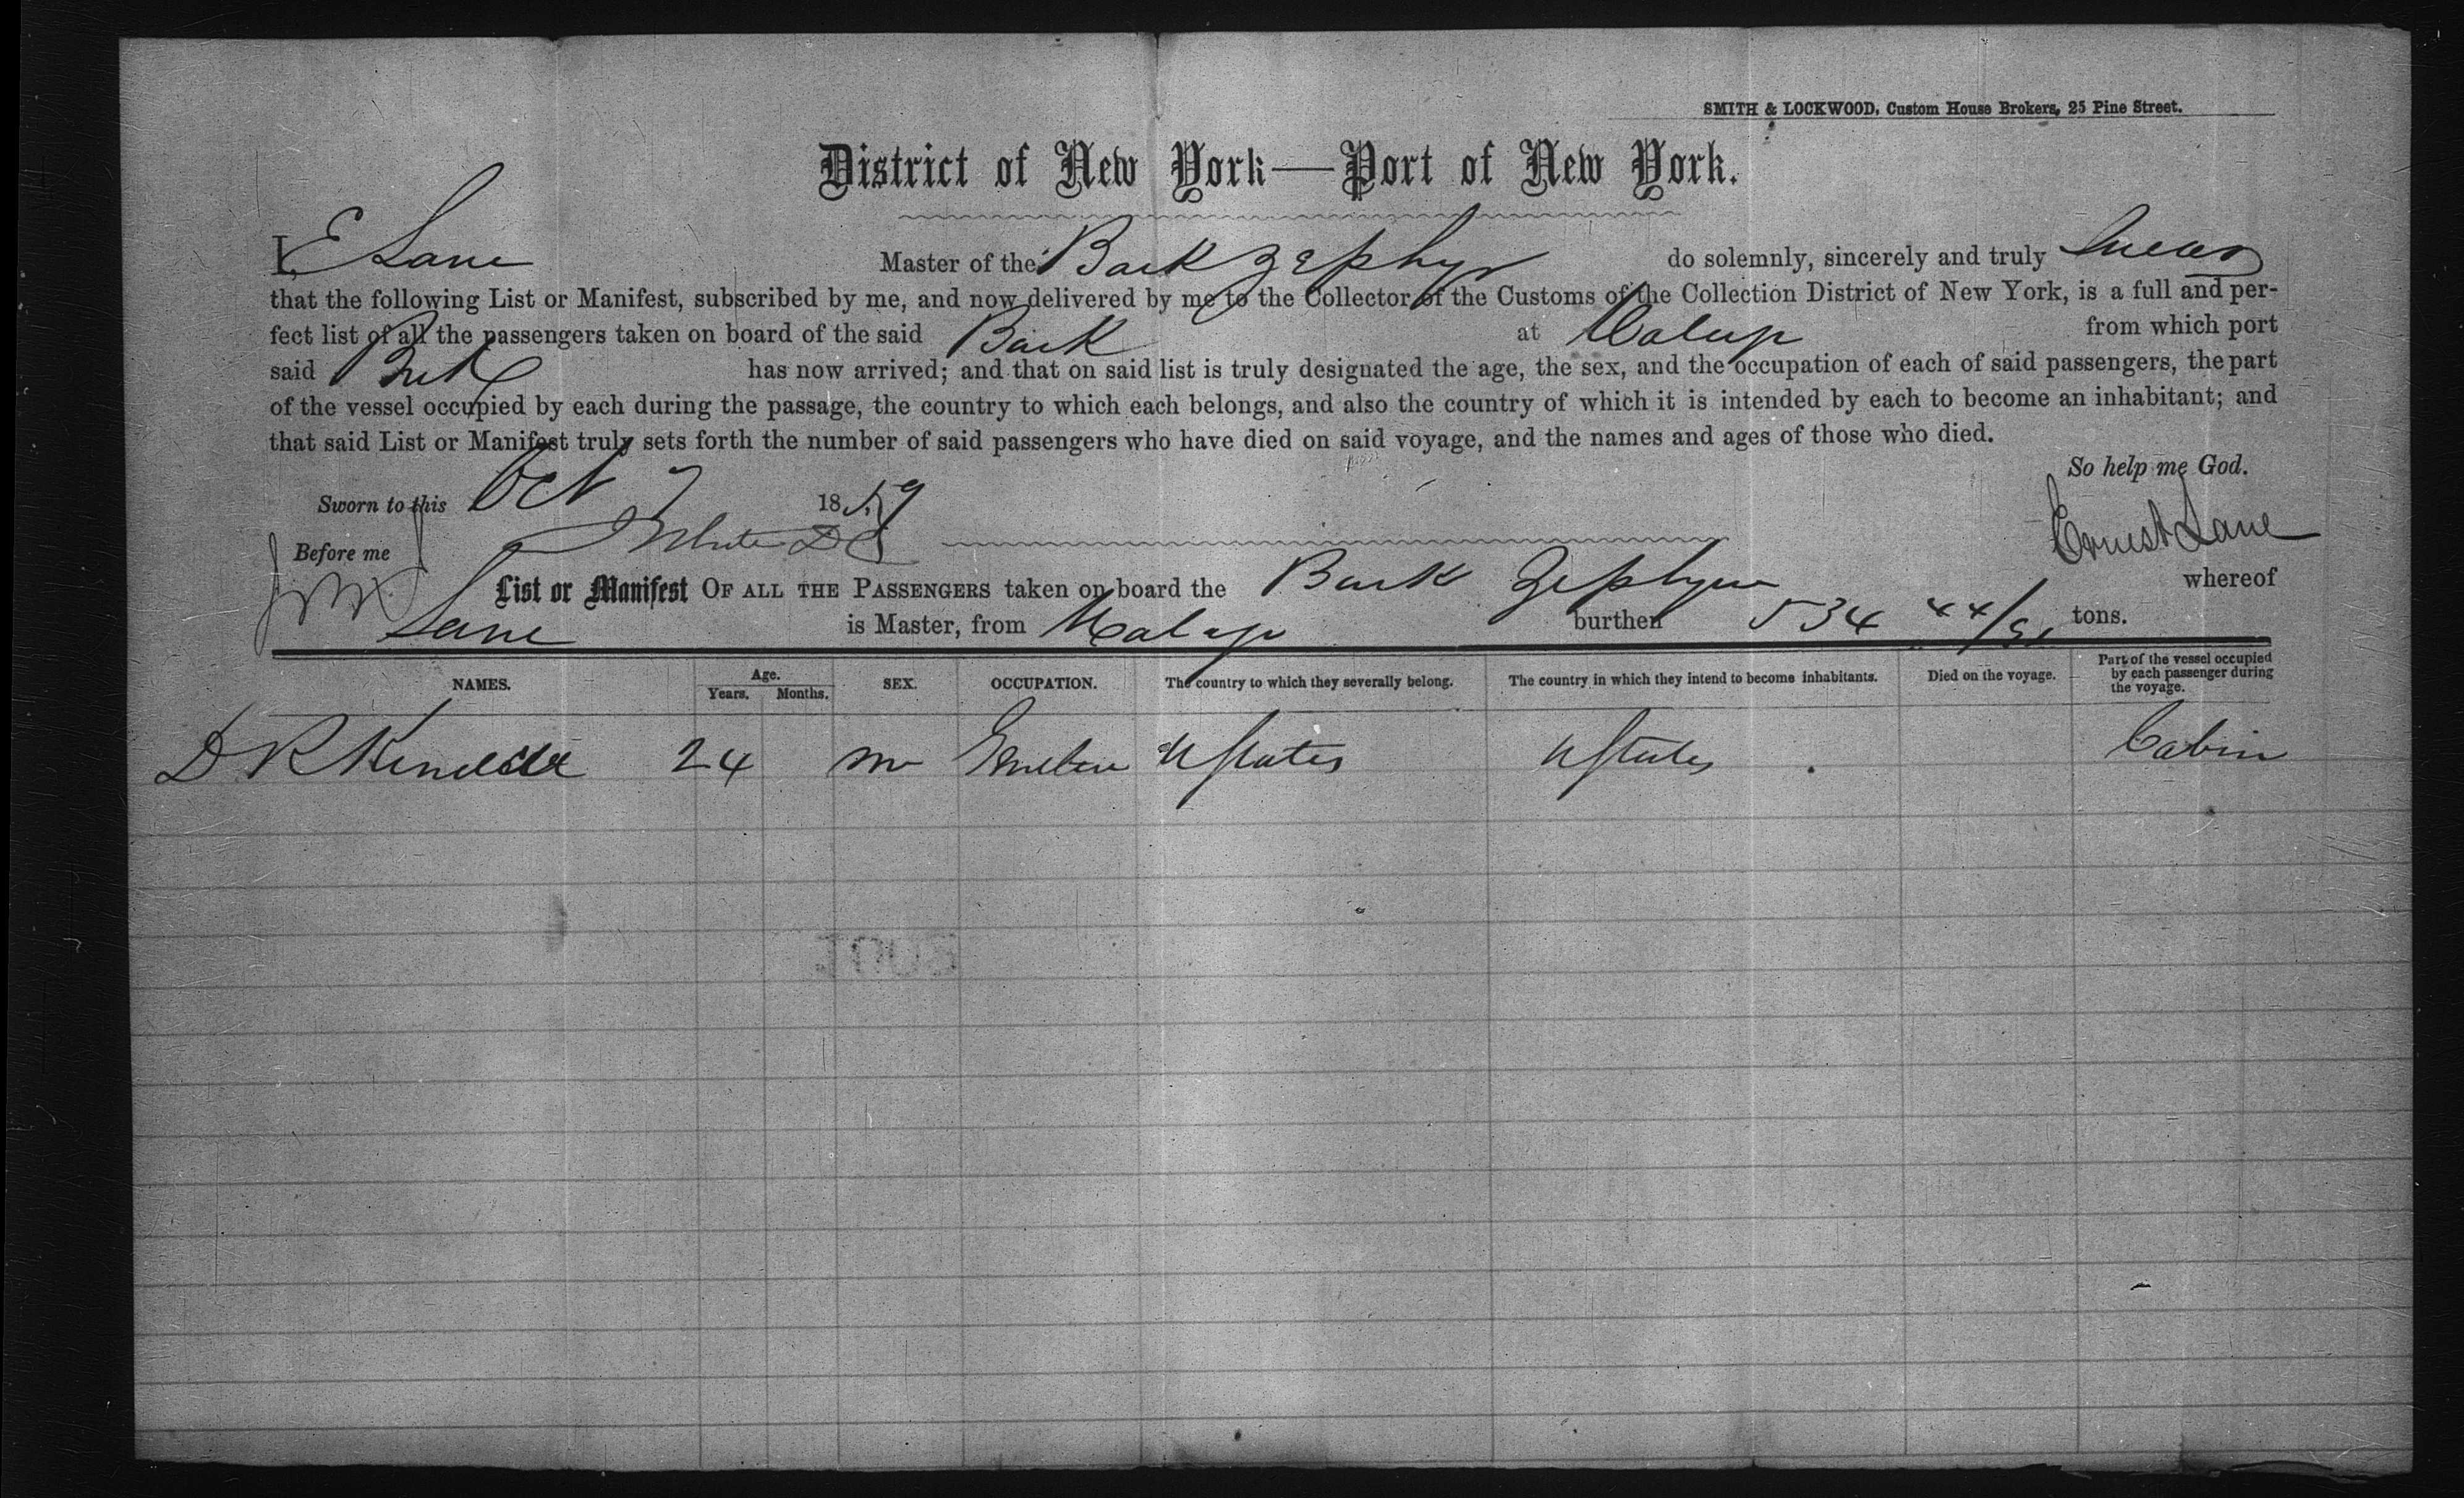 SMITH & LOCKWOOD, Custom House Brokers, 25 Pine Street.
District of New York—Port of New York.
I, E Lane Master of the Bark Zephyr do solemnly, sincerely and truly Swear
that the following List or Manifest, subscribed by me, and now delivered by me to the Collector of the Customs of the Collection District of New York, is a full and per-
fect list of all the passengers taken on board of the said Bark at from which port
said Bark has now arrived; and that on said list is truly designated the age, the sex, and the occupation of each of said passengers, the part
of the vessel occupied by each during the passage, the country to which each belongs, and also the country of which it is intended by each to become an inhabitant; and
that said List or Manifest truly sets forth the number of said passengers who have died on said voyage, and the names and ages of those who died.
So help me God.
Sworn to this Oct 7 1859
Ernest Lane
Before me
List or Manifest OF ALL THE PASSENGERS taken on board the Bark Zephyr whereof
Lane is Master, from Malaga burthen 534 44/95 tons.
NAMES. Age. Years. Months. SEX. OCCUPATION. The country to which they severally belong. The country in which they intend to become inhabitants. Died on the voyage. Part of the vessel occupied by each passenger during the voyage.
D R 24 m U States U States Cabin